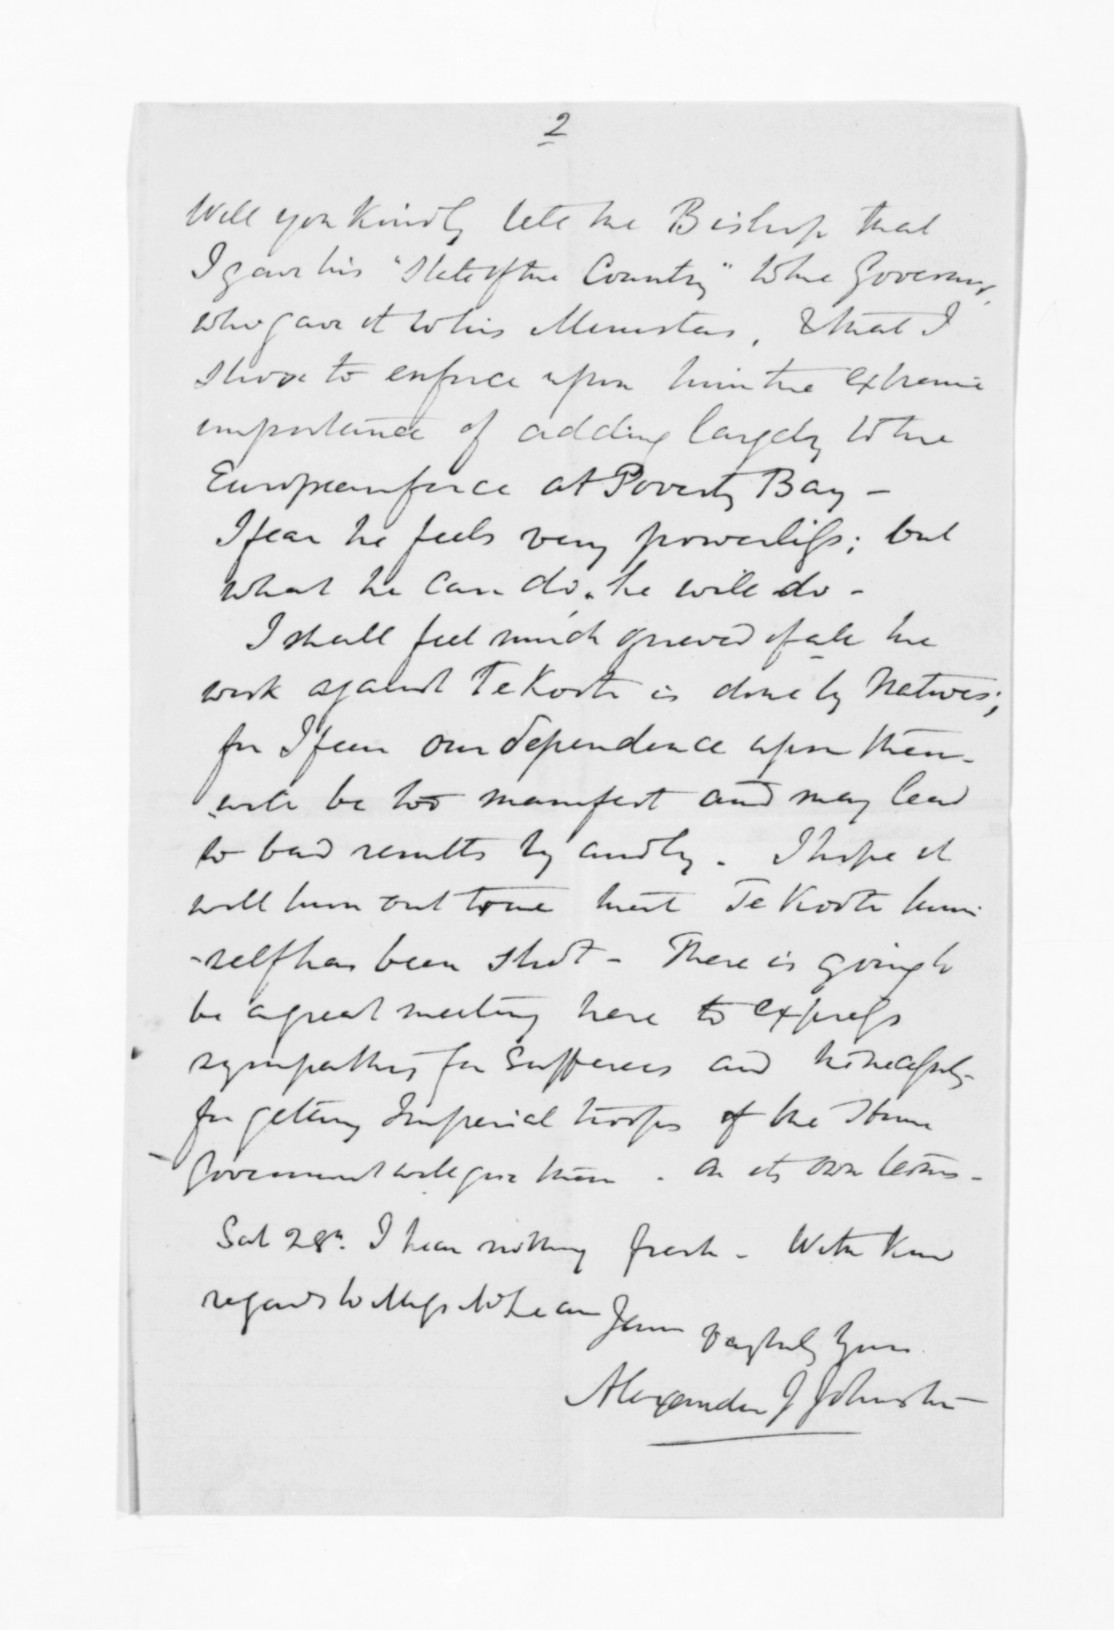 2
Will you kindly tell the Bishop that
I gave his "State of the Country" to the Governor,
who gave it to his Ministers, & that I
strove to enforce upon him the extreme
importance of adding largely to the
European force at Poverty Bay -
I fear he feels very powerless; but
what he can do, he will do -
I shall feel much grieved if all the
work against Te Kooti is done by Natives;
for I fear our dependence upon them
will be too manifest and may lead
to bad results by and by. I hope it
will turn out true that Te Kooti him
-self has been shot - There is going to
be a great meeting here to express
sympathy for Sufferers and the necessity
for getting Imperial troops if the Home
Government will give them - on its own terms -
Sat 28th. I hear nothing fresh - With kind
regards to McLean
faithfully Yours
Alexander J Johnston